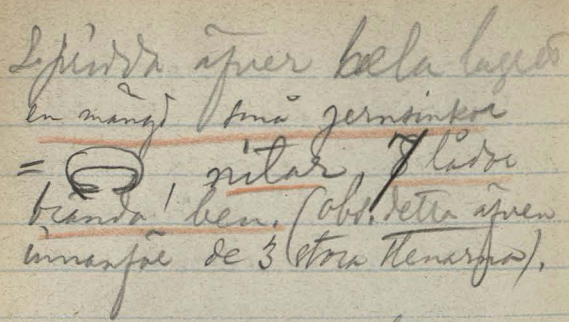 Spridda äfver hela laget
en mängd små jernsinkor
= nitar, 7 lådor
brända! ben. (obs. detta äfven
innanför de 3 stora stenarna).